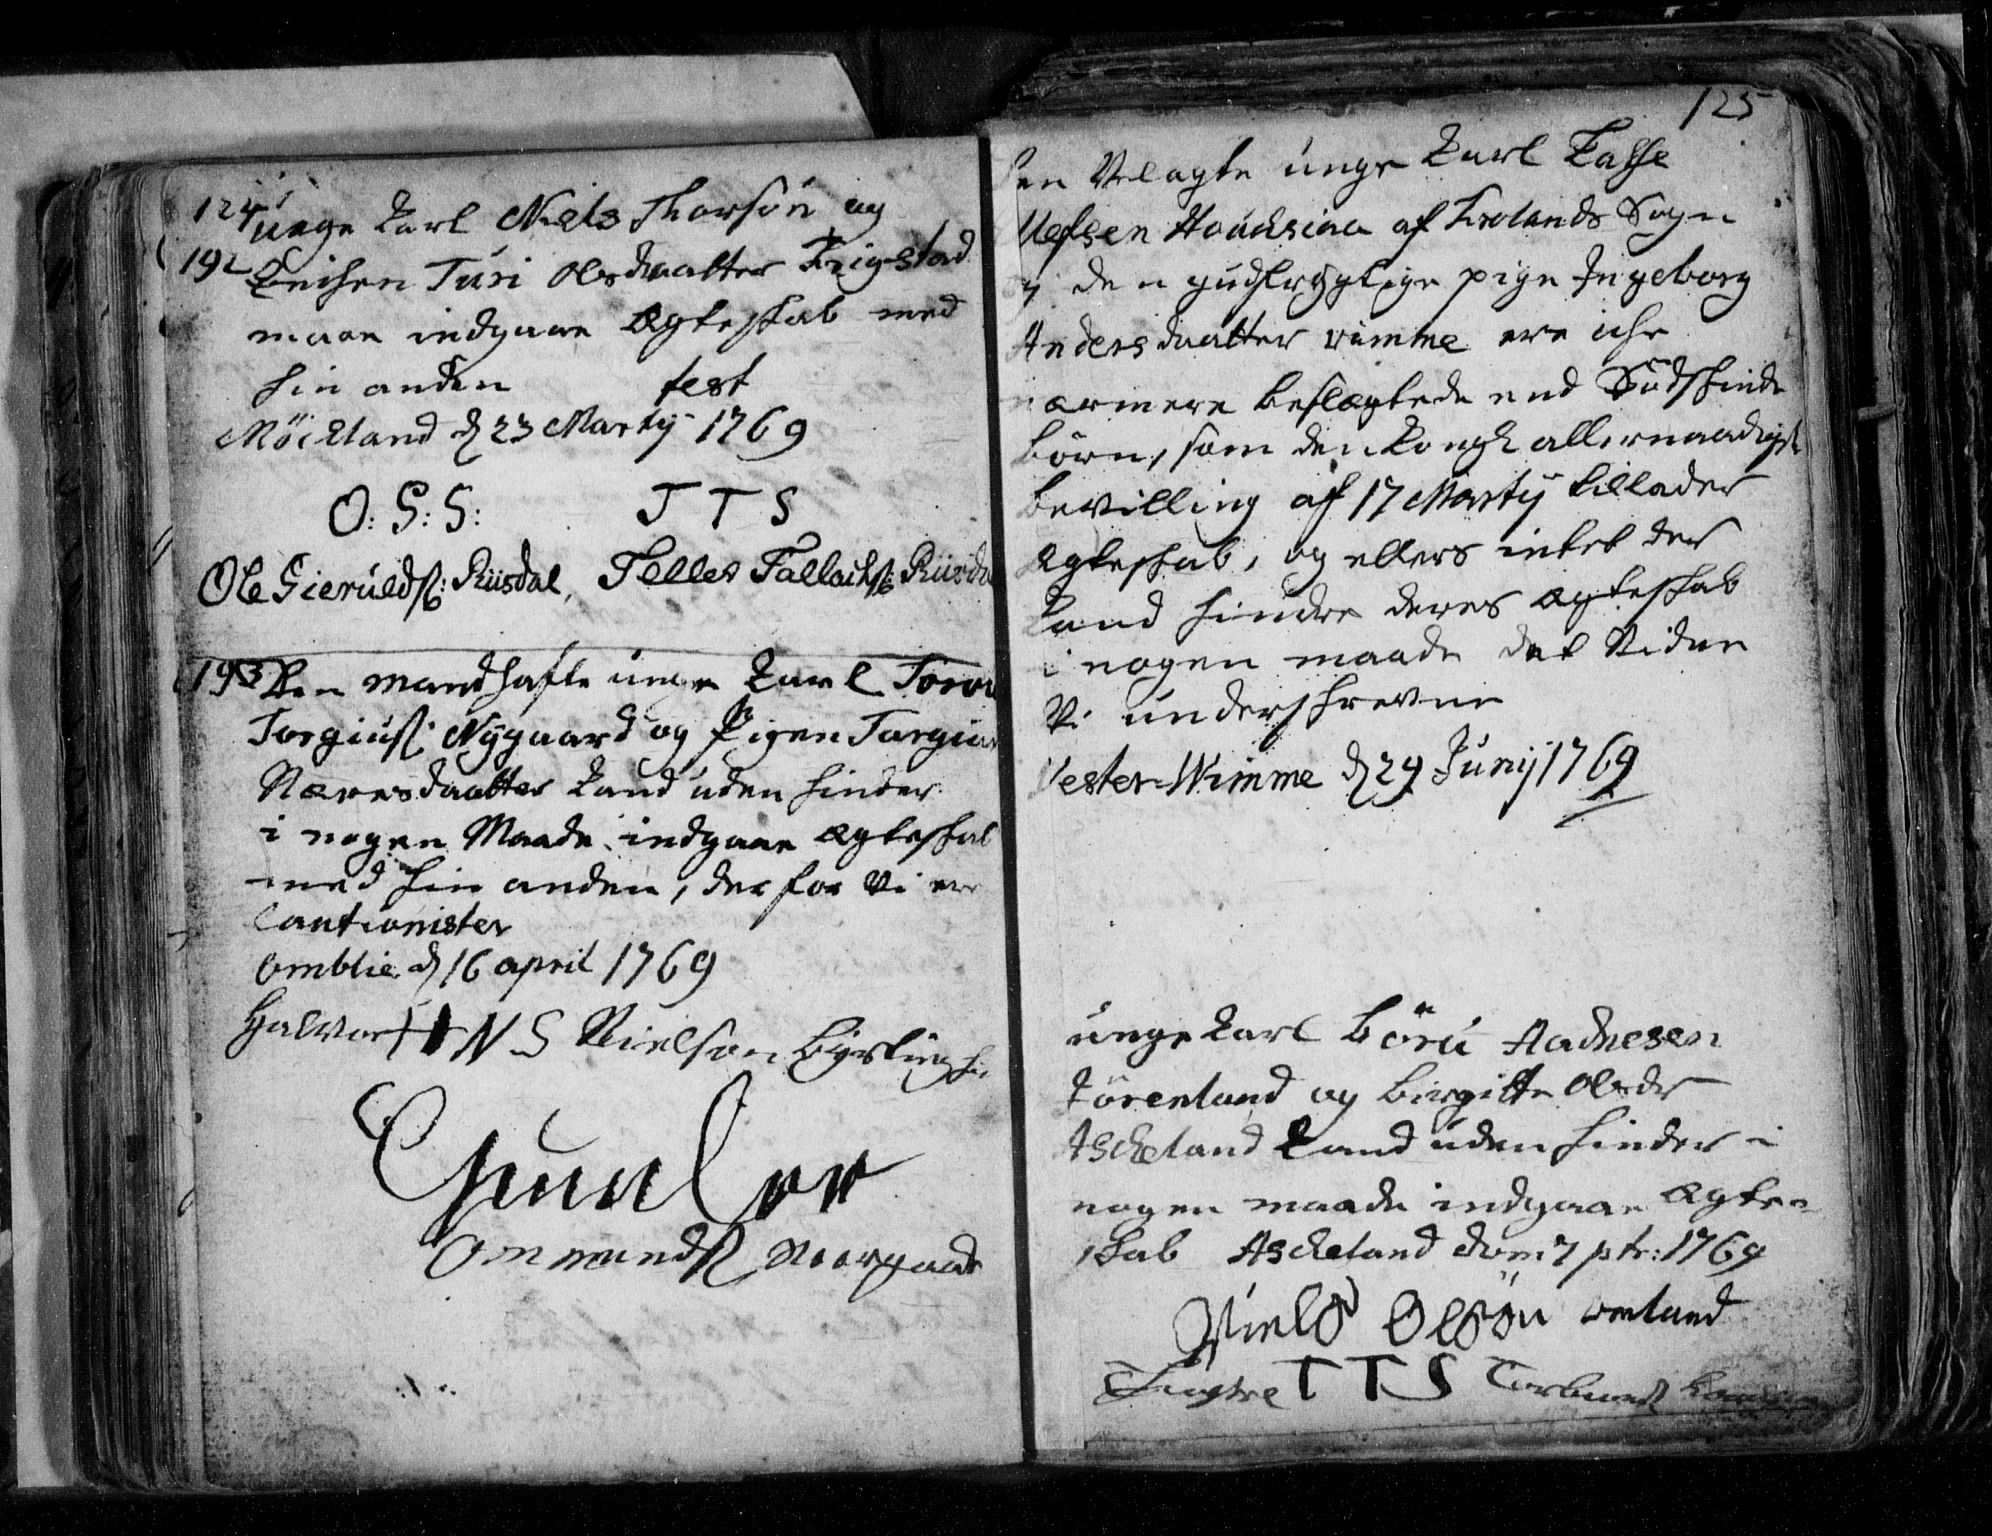 124
unge Karl Niels Thorsøn og
192 Enchen Turi Olsdaatter Frigstad
maae indgaae Ægteskab med
hin anden test
Møckland d 23 Martij 1769
O: G: S: T T S
Ole Gieruldß: Riisdal, Tellev Fallachß: Riisda
193 Den mandhafte unge Karl
Torgiusß Nygaard og Pigen Torgiu
Nævesdaatter kand uden hinder
i nogen Maade indgaae Ægteskab
med hin anden, der for Vi ere
Cautionister
Omblie d 16 april 1769
Halvor H N S Nielsøn
Gunder
Ommundß
125
Den Velagte unge Karl Kasse
af Frolands Sogn
og den gudfrygtige pige Ingeborg
Andersdaatter vimme ere iche
nærmere beslægtede end Sødskinde
børn, som den Kongl allernaadigst
bevilling af 17 Martij tillader
Ægteskab, og ellers intet der
kand hindre deres Ægteskab
i nogen maade det Vidner
Vi underskrevne
Vester-Wimme d 29 Junij 1769
unge Karl Børu Aadnesen
Tørenland og Birgitte Olsdr
Ascheland kand uden hinder i
nogen maade indgaae Ægte-
skab Ascheland dom 7 p tr: 1769
Niels Olsøn omland
T T S